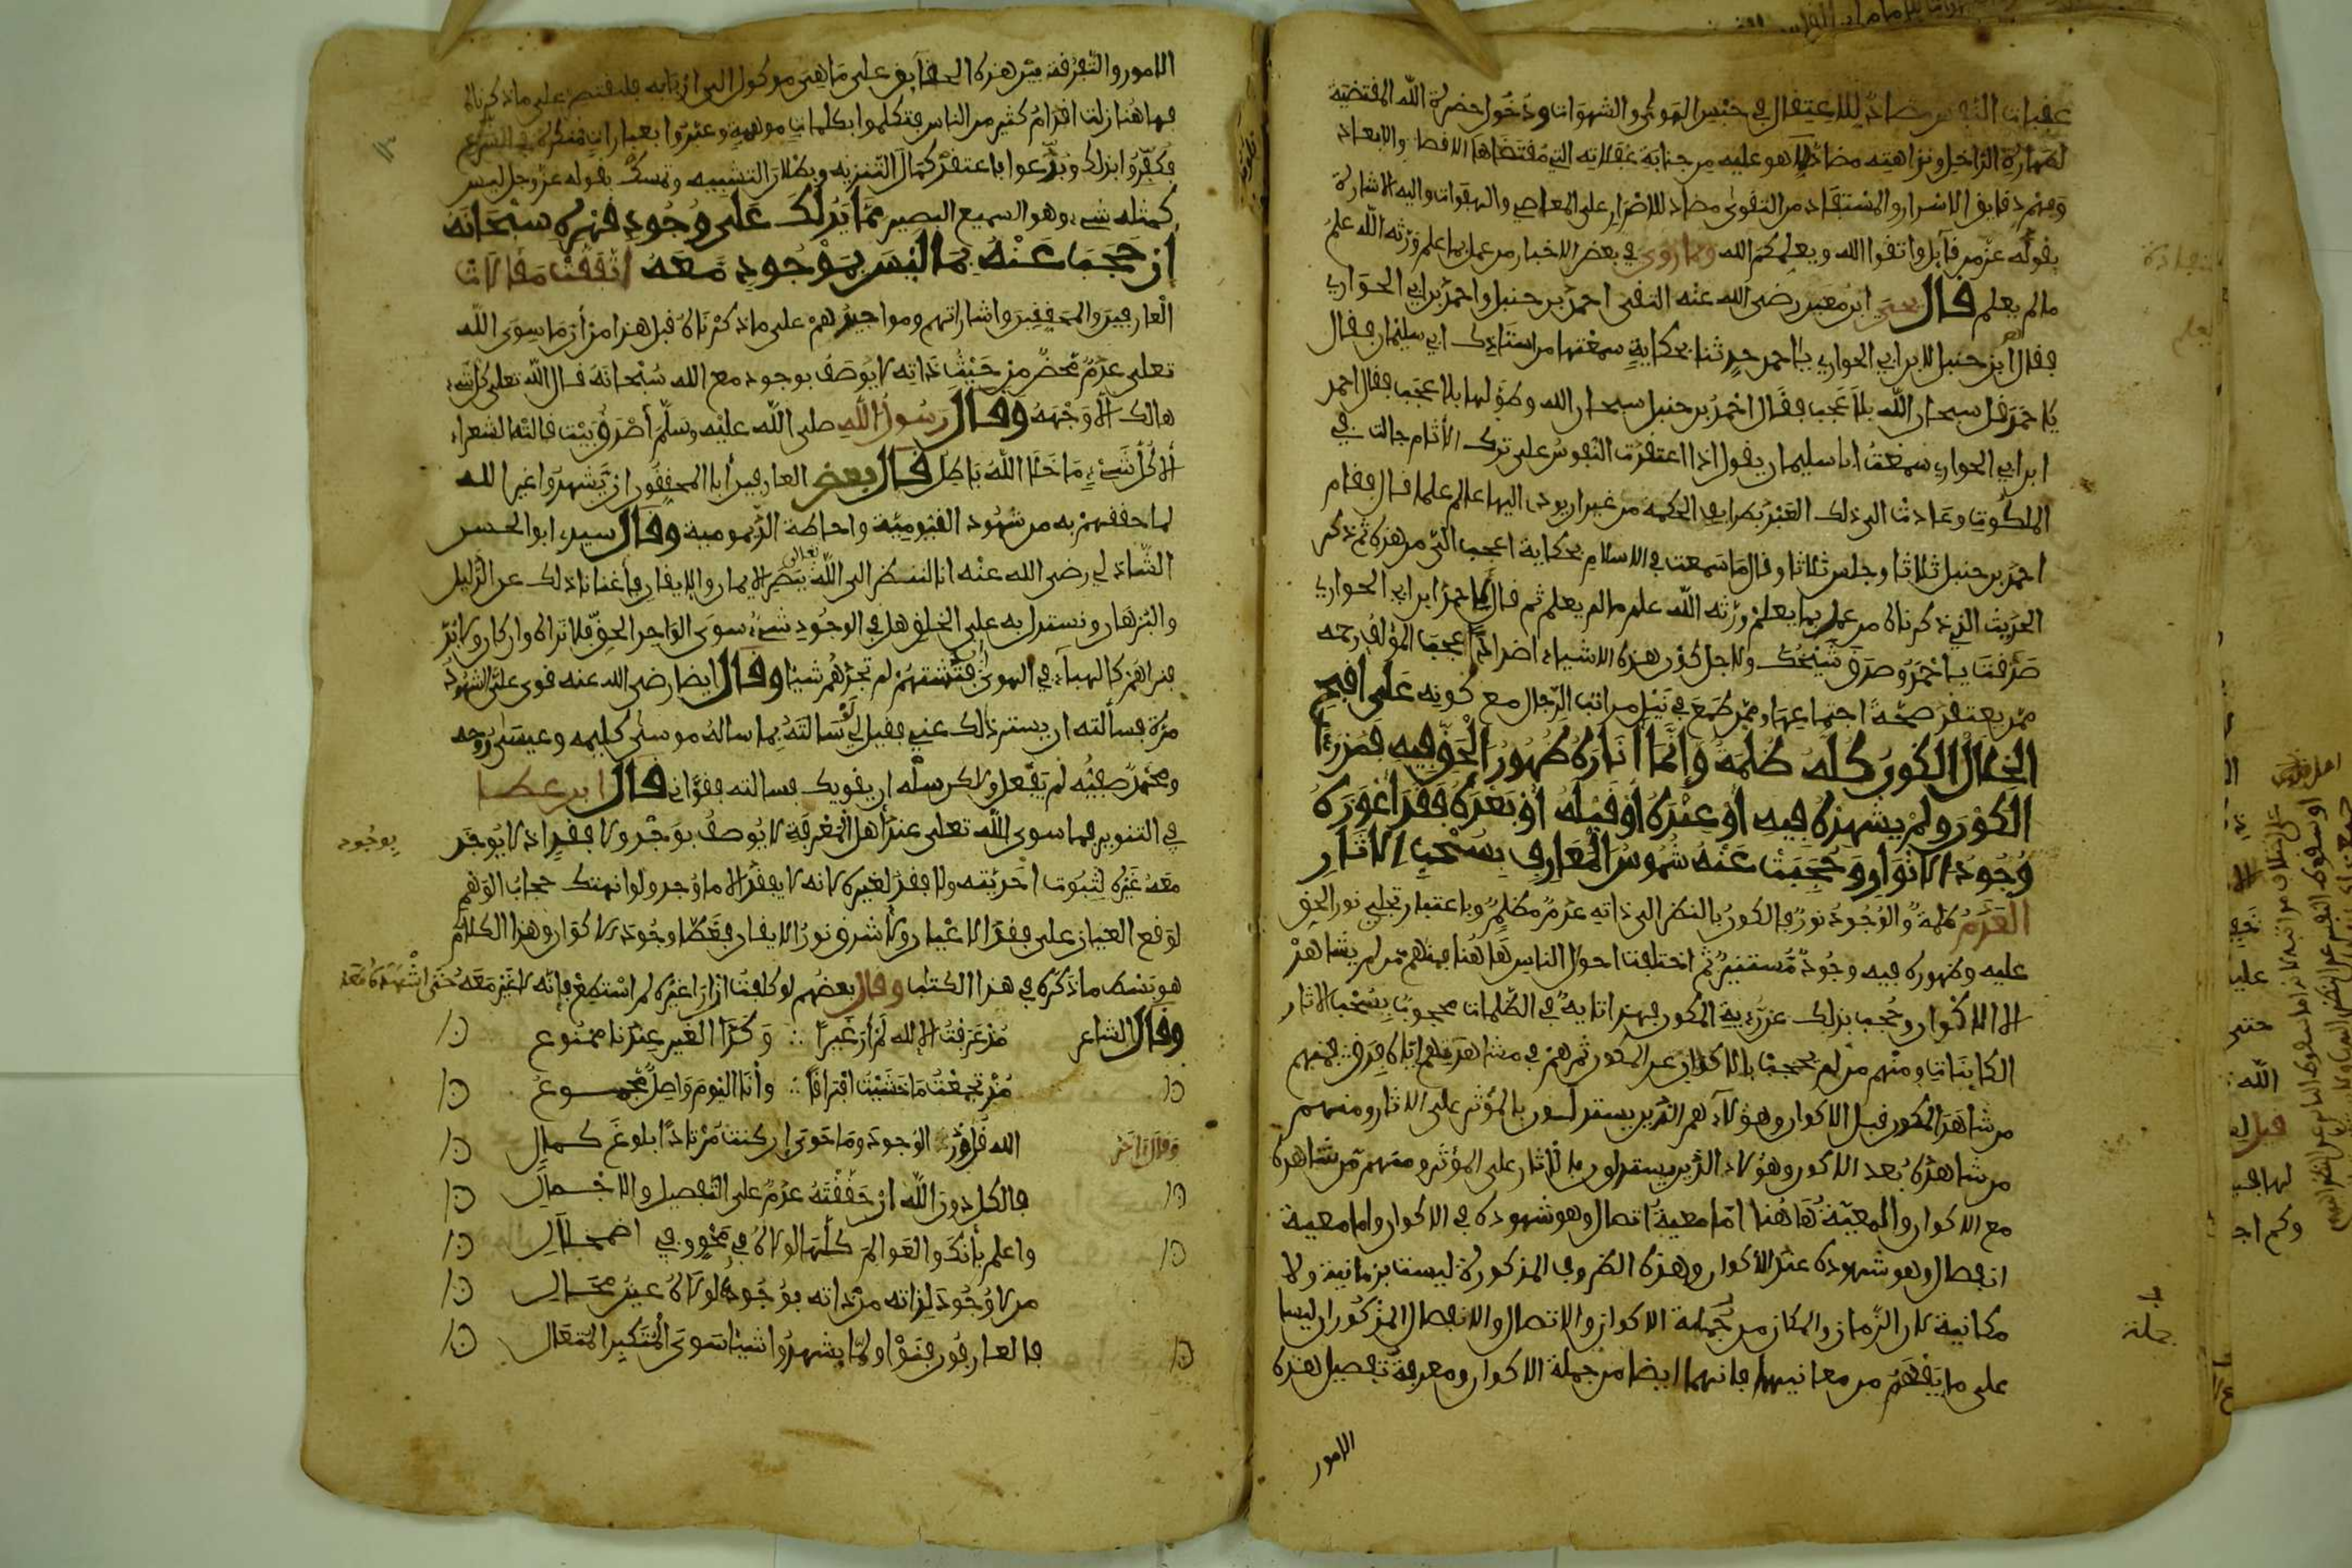 عقبات النفس مضاد للاعتقال في حبس الهوى والشهوات ودخول حضرة الله المقتضية
لطهارة الداخل ونزاهته مضاد لما هو عليه من جنابة غفلاته التي مقتضاها الاقصاء والابعاد
وفهم دقايق الاسرار والمستفاد من التقوى مضاد للاصرار على المعاصي والهفوات واليه الاشارة
بقوله عز من قايل واتقوا الله ويعلمكم الله وما روي في بعض الاخبار من عمل بما علم ورثه الله علم
ما لم يعلم قال يحيى ابن معين رضي الله عنه التقى احمد بن حنبل واحمد بن ابي الحواري
فقال احمد ابن حنبل لابن ابي الحواري يا احمد حدثنا بحكاية سمعتها من استاذك ابي سليمان فقال
يا احمد قل سبحان الله بلا عجب فقال احمد بن حنبل سبحان الله وطولها بلا عجب فقال احمد
ابن ابي الحواري سمعت ابا سليمان يقول اذا اعتقدت النفوس على ترك الآثام جالت في
الملكوت وعادت الى ذلك العبد بطرايف الحكمة من غير ان يودي اليها عالم علما قال فقام
احمد بن حنبل ثلاثا وجلس ثلاثا وقال ما سمعت في الاسلام بحكاية اعجب الي من هذه ثم ذكر
الحديث الذي ذكرناه من عمل بما يعلم ورثه الله علم ما لم يعلم ثم قال يا احمد ابن ابي الحواري
صدقت يا احمد وصدق شيخك ولاجل كون هذه الاشياء اضدادا عجب المؤلف رحمه
ممن يعتقد صحة اجتماعها وممن طمع في نيل مراتب الرجال مع كونه على اقبح
الخلال الكون كله ظلمة وانما اناره ظهور الحق فيه فمن رءا
الكون ولم يشهده فيه او عنده او قبله او بعده فقد اعوزه
وجود الانوار وحجبت عنه شموس المعارف بسحب الاثار
العدم ظلمة والوجود نور فالكون بالنظر الى ذاته عدم مظلم وباعتبار تجلي نور الحق
عليه وظهوره فيه وجود مستنير ثم اختلفت احوال الناس هاهنا فمنهم من لم يشاهد
الا الاكوان وحجب بذلك عن رءية المكون فهذا تايه في الظلمات محجوب بسحب الاثار
الكاينات ومنهم من لم يحجب بالاكوان عن المكون ثم هم في مشاهدتهم اياه فرق فمنهم
من شاهد المكون قبل الاكوان وهؤلاء هم الذين يستدلون بالمؤثر على الاثار ومنهم
من شاهده بعد الاكون وهؤلاء الذين يستدلون بالاثار على المؤثر ومنهم من شاهده
مع الاكوان والمعية هاهنا اما معية اتصال وهو شهوده في الاكوان واما معية
انفصال وهو شهوده عند الاكوان وهذه الظروف المذكورة ليست بزمانية ولا
مكانية لان الزمان والمكان من جملة الاكوان والاتصال والانفصال المذكوران ليسا
على ما يفهم من معانيهما فانهما ايضا من جملة الاكوان ومعرفة تفصيل هذه
الامور
يعلم
جملة
الامور والتفرقة بين هذه الحقايق على ما هي موكول الى اربابه فليقتصر على ما ذكرناه
فهاهنا زلت اقدام كثير من الناس فتكلموا بكلمات موهمة وعبروا بعبارات منكرة في الشرع
فكفروا بذلك وبدعوا باعتقد كمال التنزيه وبطلان التشبيه وتمسك بقوله عز وجل ليس
كمثله شيء وهو السميع البصير مما يدلك على وجود قهره سبحانه
ان حجبك عنه بما ليس بموجود معه اتفقت مقالات
العارفين والمحققين واشاراتهم ومواجيدهم على ما ذكرناه قبل هذا من أن ما سوى الله
تعلى عدم محض من حيث ذاته لا يوصف بوجود مع الله سبحانه قال الله تعلى كل شيء
هالك الا وجهه وقال رسول الله صلى الله عليه وسلم أصدق بيت قالته الشعراء
ألا كل شيء ما خلا الله باطل قال بعض العارفين أبا المحققون ان يشهدوا غير الله
لما حققهم به من شهود القيومية واحاطة الديمومية وقال سيدي ابو الحسن
الشاذلي رضي الله عنه انا لننظر الى الله تعالى ببصر الايمان والايقان فأغنانا ذلك عن الدليل
والبرهان ونستدل به على الخلق هل في الوجود شيء سوى الواحد الحق فلا تراه وان كان ولا بد
فتراهم كالهباء في الهوى ان فتشتهم لم تجدهم شيئا وقال ايضا رضي الله عنه قوي علي الشهود
مرة فسألته ان يستر ذلك عني فقيل لي لو سالته بما ساله موسى كليمه وعيسى روحه
ومحمد صفيه لم يفعل ولاكن سله ان يقويك فسالته فقواني قال ابن عطا
في التنوير فما سوى الله تعلى عند أهل المعرفة لا يوصف بوجد ولا بفقد اذ لا يوجد
بوجود
معه غيره لثبوت احديته ولا فقد لغيره لانه لا يفقد الا ما وجد ولو انهتك حجاب الوهم
لوقع العيان على فقد الاعيان ولأشرق نور الايقان فغطا وجود الاكوان وهذا الكلام
هو بسط ما ذكره في هذا الكتاب وقال بعضهم لو كلفت ان ارا غيره لم استطع فانه لا غير معه حتى اشهده معه
وقال الشاعر مذ عرفت الاله لم أر غيرا ∴ وكذا الغير عندنا ممنوع
مذ تجمعت ما خشيت افتراقا ∴ وأنا اليوم واصل مجموع
وقال اخر الله قل وذر الوجود وما حوى ان كنت مرتادا بلوغ كمال
فالكل دون الله ان حققته عدم على التفصيل والاجمال
واعلم بأنك والعوالم كلها لولاه في محو وفي اضمحلال
من لا وجود لذاته من ذاته فوجوده لولاه عين محال
فالعارفون فنوا ولما يشهدوا شيئا سوى المتكبر المتعال